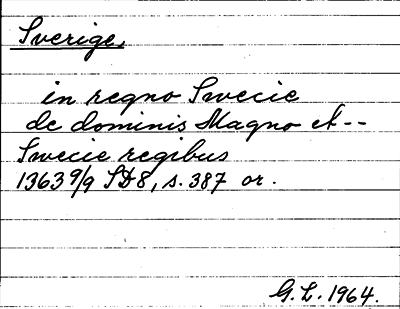 Sverige,
in regno Swecie
de dominis Magno et --
Swecie regibus
1363 9/9 SD8, s. 387 or.
G. L. 1964.